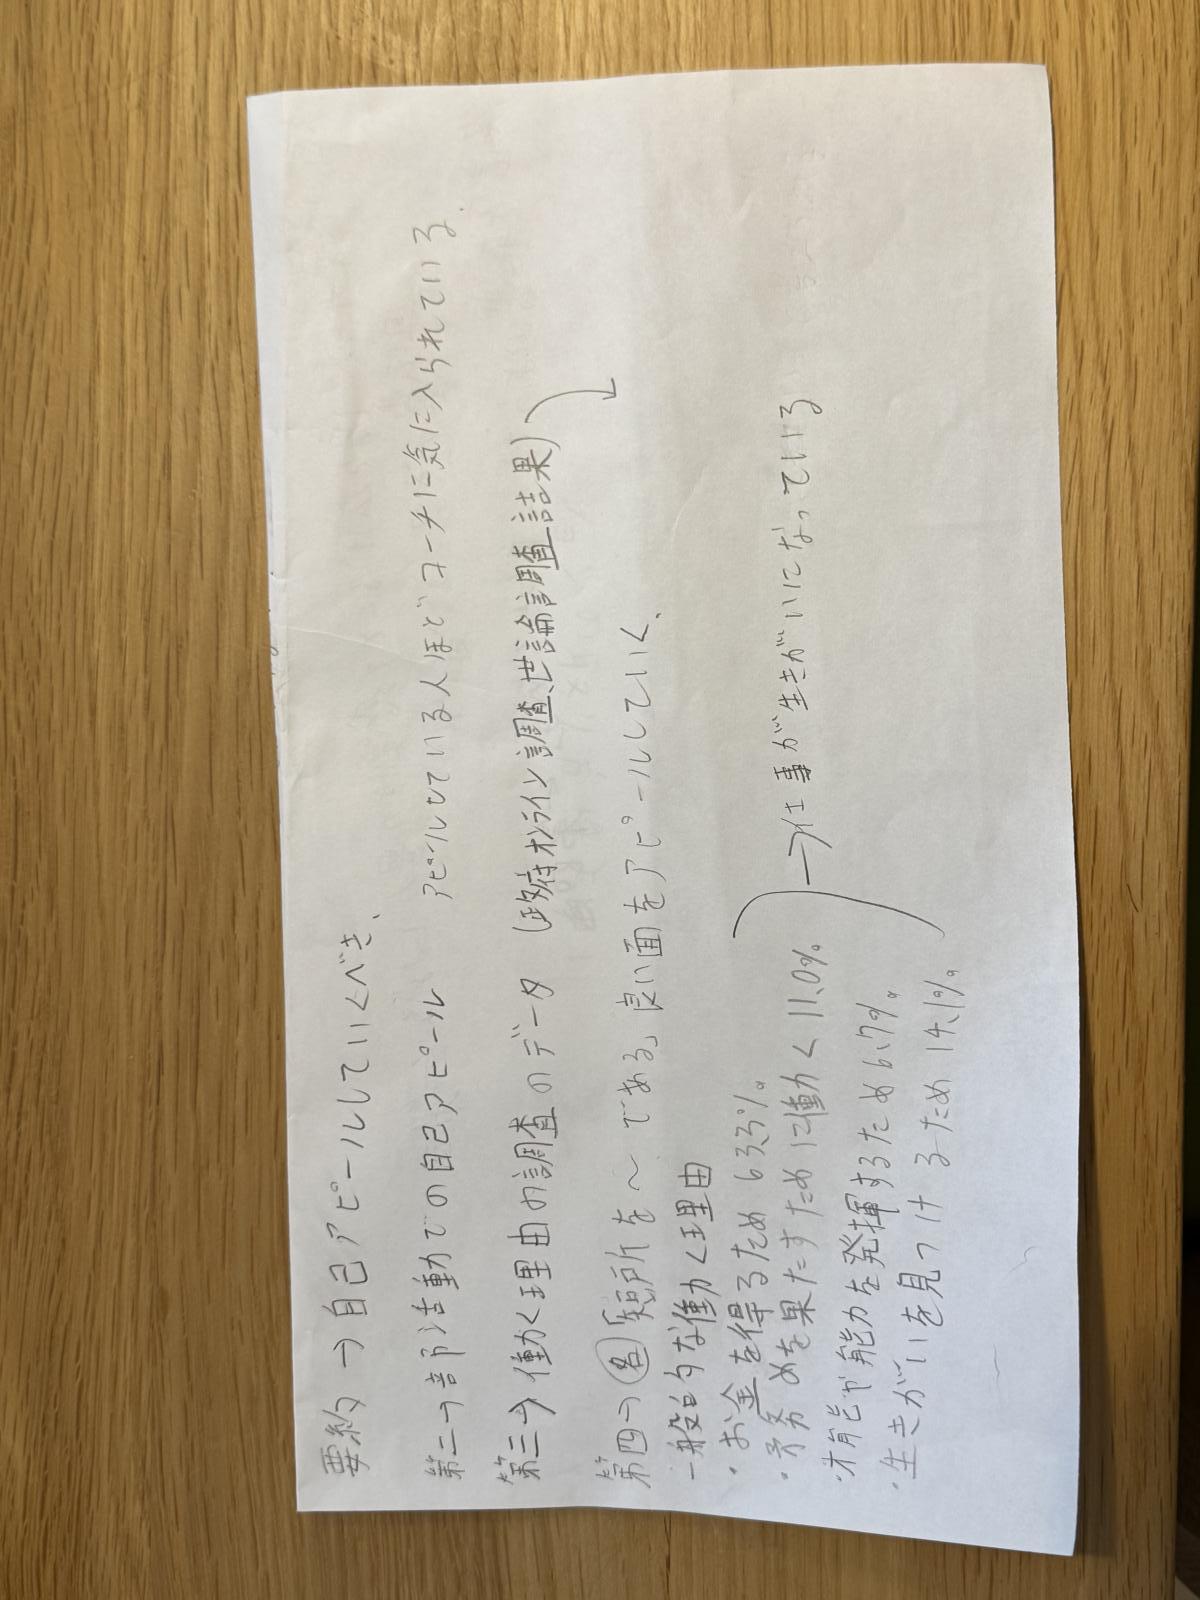 要約→自己アピールしていくべき、
第二→部活動での自己アピール アピールしている人ほどコーチに気に入られている.
第三→働く理由の調査のデータ (政府オンライン調査、世論調査結果)
第四→名「短所を〜である」良い面をアピールしていく、
一般的な働く理由
・お金を得るため 63.3%。
・務めを果たすために働く 11.0%
・才能や能力を発揮するため 6.7%。
・生きがいを見つけるため 14.1%。
→仕事が生きがいになっている